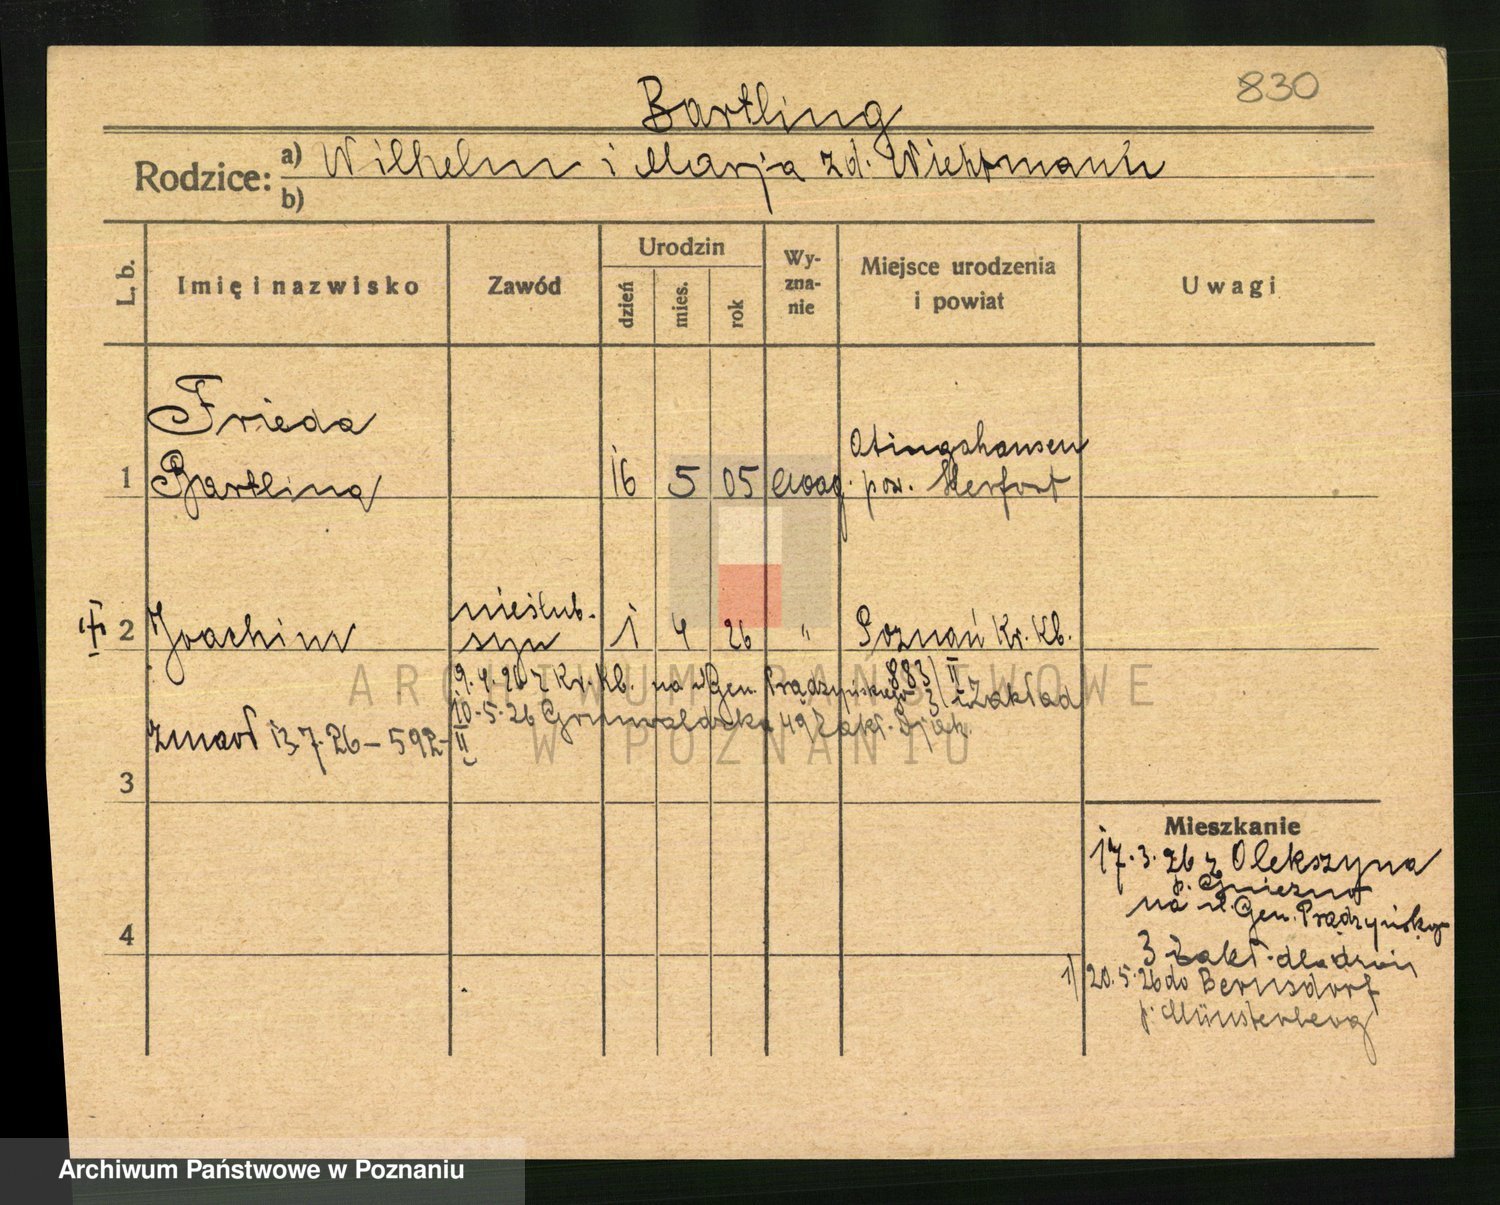 830
Bartling
Rodzice: a) Wilhelm i Marja zd. Wiehtmann
b)
L. b.
Imię i nazwisko
Zawód
Urodzin
dzień
mies.
rok
Wy-
zna-
nie
Miejsce urodzenia
i powiat
Uwagi
Frieda
1 Bartling 16 5 05 ewag. Otingshausen
pow. Herfort
2 Joachim nieślub.
syn 1 4 26 " Poznań Kr. Kb.
883/II
9.4.26 z Kr. Kb. na ul Gen. Prądzyńskiego 3/ Zakład
10.5.26 Grunwaldzka 49 Zakł. Djak.
zmarł 13.7.26 – 592-II
3
4
Mieszkanie
17.3.26 z Olekszyna
p. Gniezno
na ul. Gen. Prądzyńskiego
3 Zakł. dla
1) 20.5.26 do Bernsdorf
p. Münsterberg
ARCHIWUM PAŃSTWOWE
W POZNANIU
Archiwum Państwowe w Poznaniu